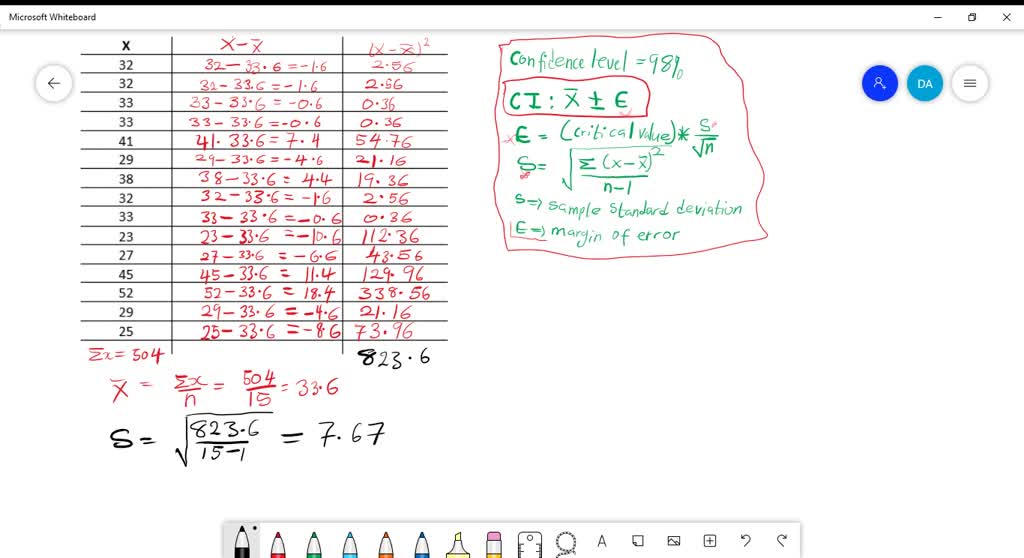 Microsoft Whiteboard
X X-X̄ (X-X̄)²
32 32-33.6=-1.6 2.56
32 32-33.6=-1.6 2.56
33 33-33.6=-0.6 0.36
33 33-33.6=-0.6 0.36
41 41.33.6=7.4 54.76
29 29-33.6=-4.6 21.16
38 38-33.6=4.4 19.36
32 32-33.6=-1.6 2.56
33 33-33.6=-0.6 0.36
23 23-33.6=-10.6 112.36
27 27-33.6=-6.6 43.56
45 45-33.6=11.4 129.96
52 52-33.6=18.4 338.56
29 29-33.6=-4.6 21.16
25 25-33.6=-8.6 73.96
Σx=504 823.6
X̄ = Σx/n = 504/15 = 33.6
S = √(823.6/15-1) = 7.67
Confidence level=98%
CI: X̄ ± E
E = (critical value)* S/√n
S = √(Σ(x-x̄)²/n-1)
S=> sample standard deviation
E=> margin of error
DA
A